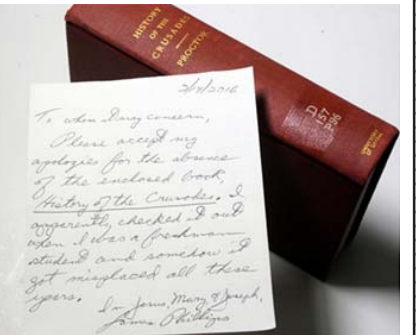 HISTORY
OF THE
CRUSADES
PROCTOR
D
157
P96
2/7/2016
To whom I may concern,
Please accept my
apologies for the absence
of the enclosed book,
History of the Crusades. I
apparently checked it out
when I was a freshman
student and somehow it
got misplaced all these
years.
In Jesus, Mary & Joseph,
James Phillips